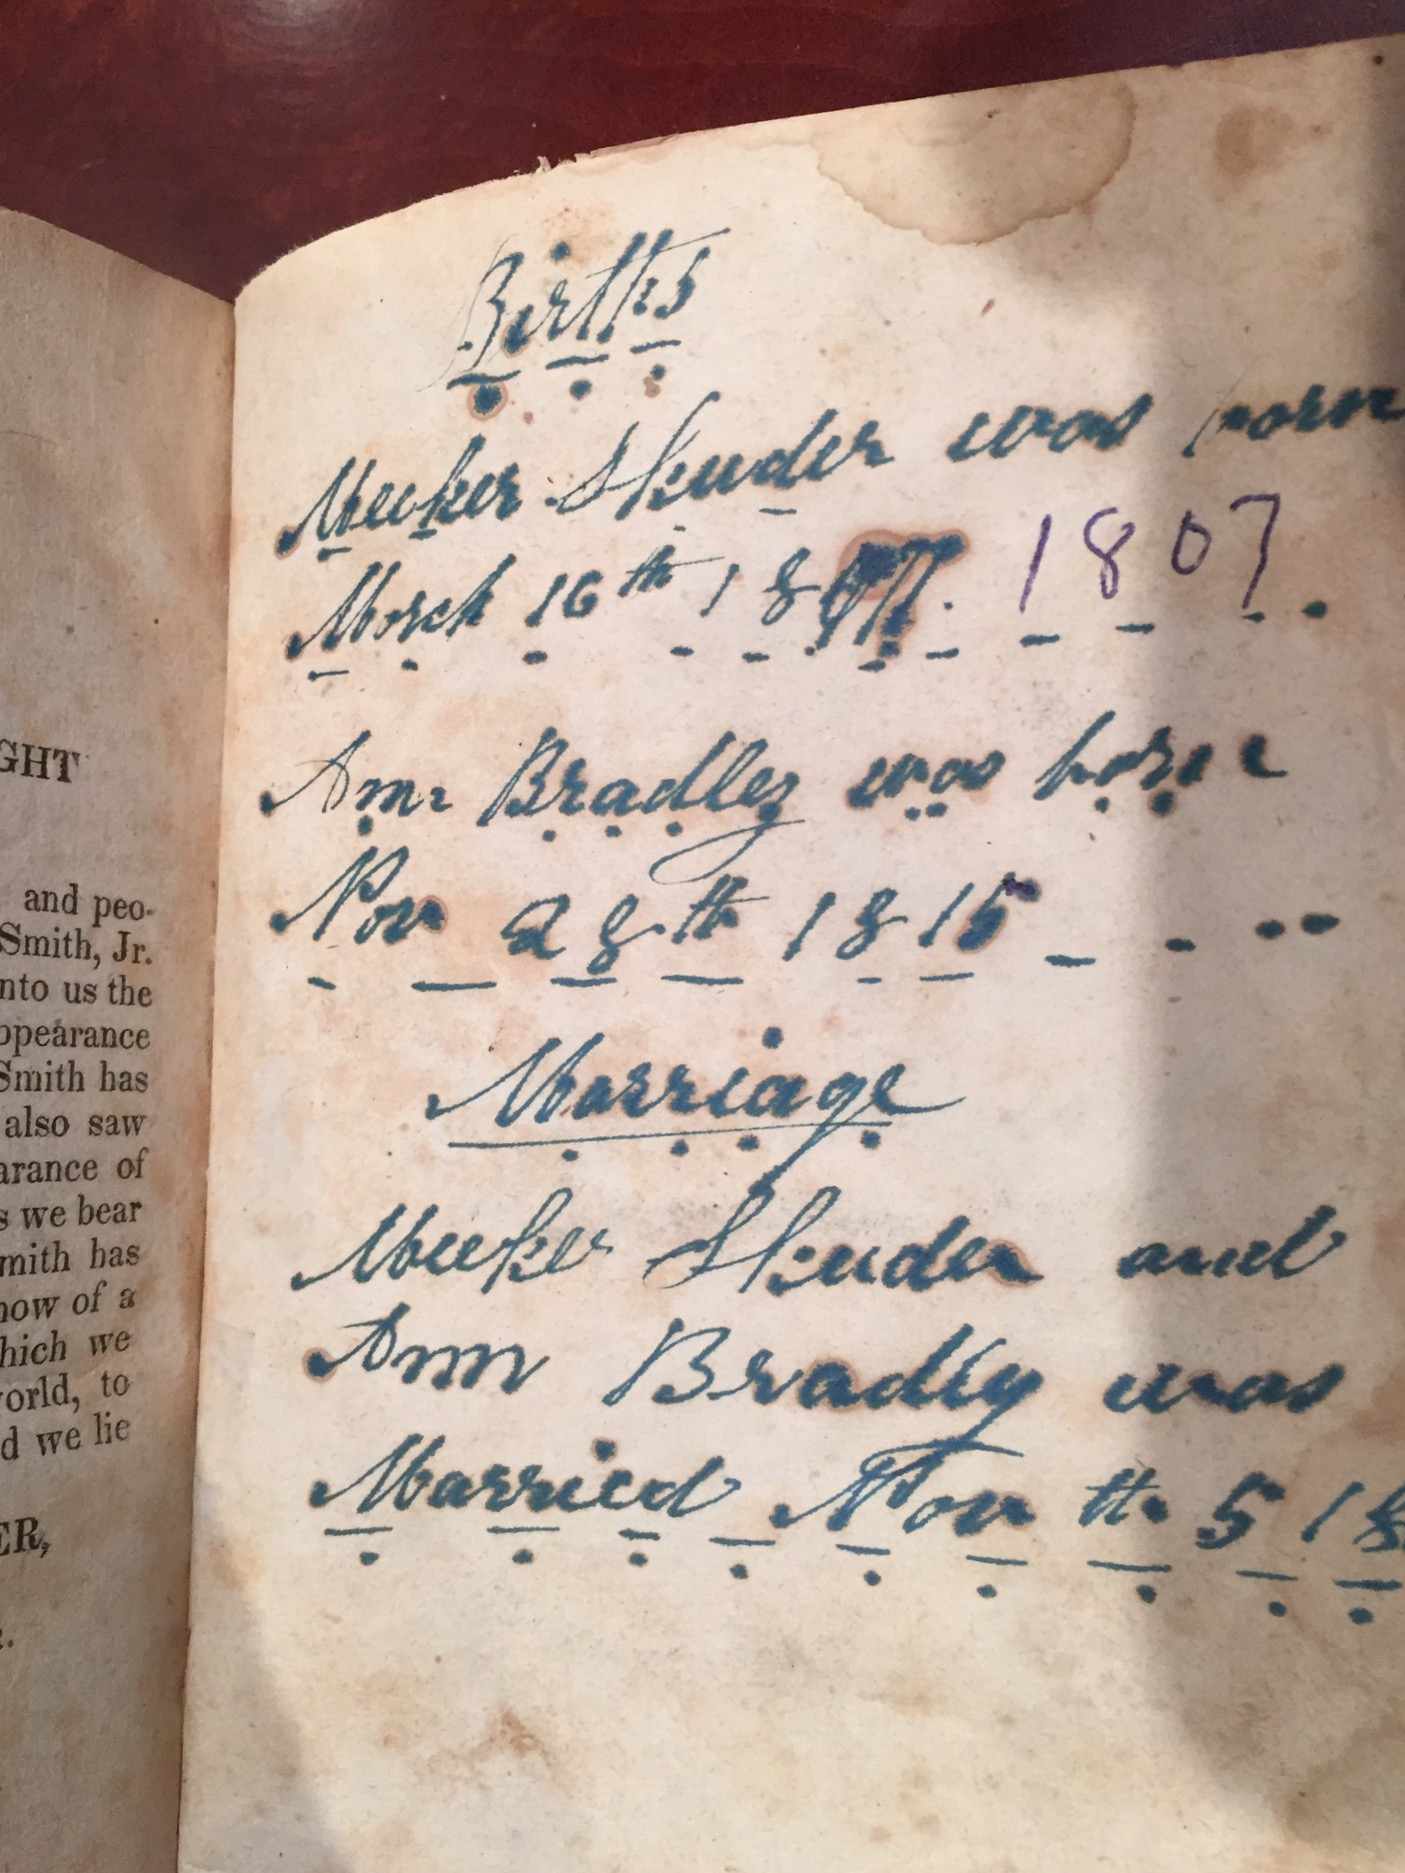 GHT
and peo-
Smith, Jr.
nto us the
ppearance
Smith has
also saw
arance of
s we bear
mith has
now of a
hich we
world, to
d we lie
ER,
Births
Meeker Skuder was born
March 16th 18 1807
Ann Bradley was born
Nov 28th 1815
Marriage
Meeker Skuder and
Ann Bradly was
Married Nov th 5 18